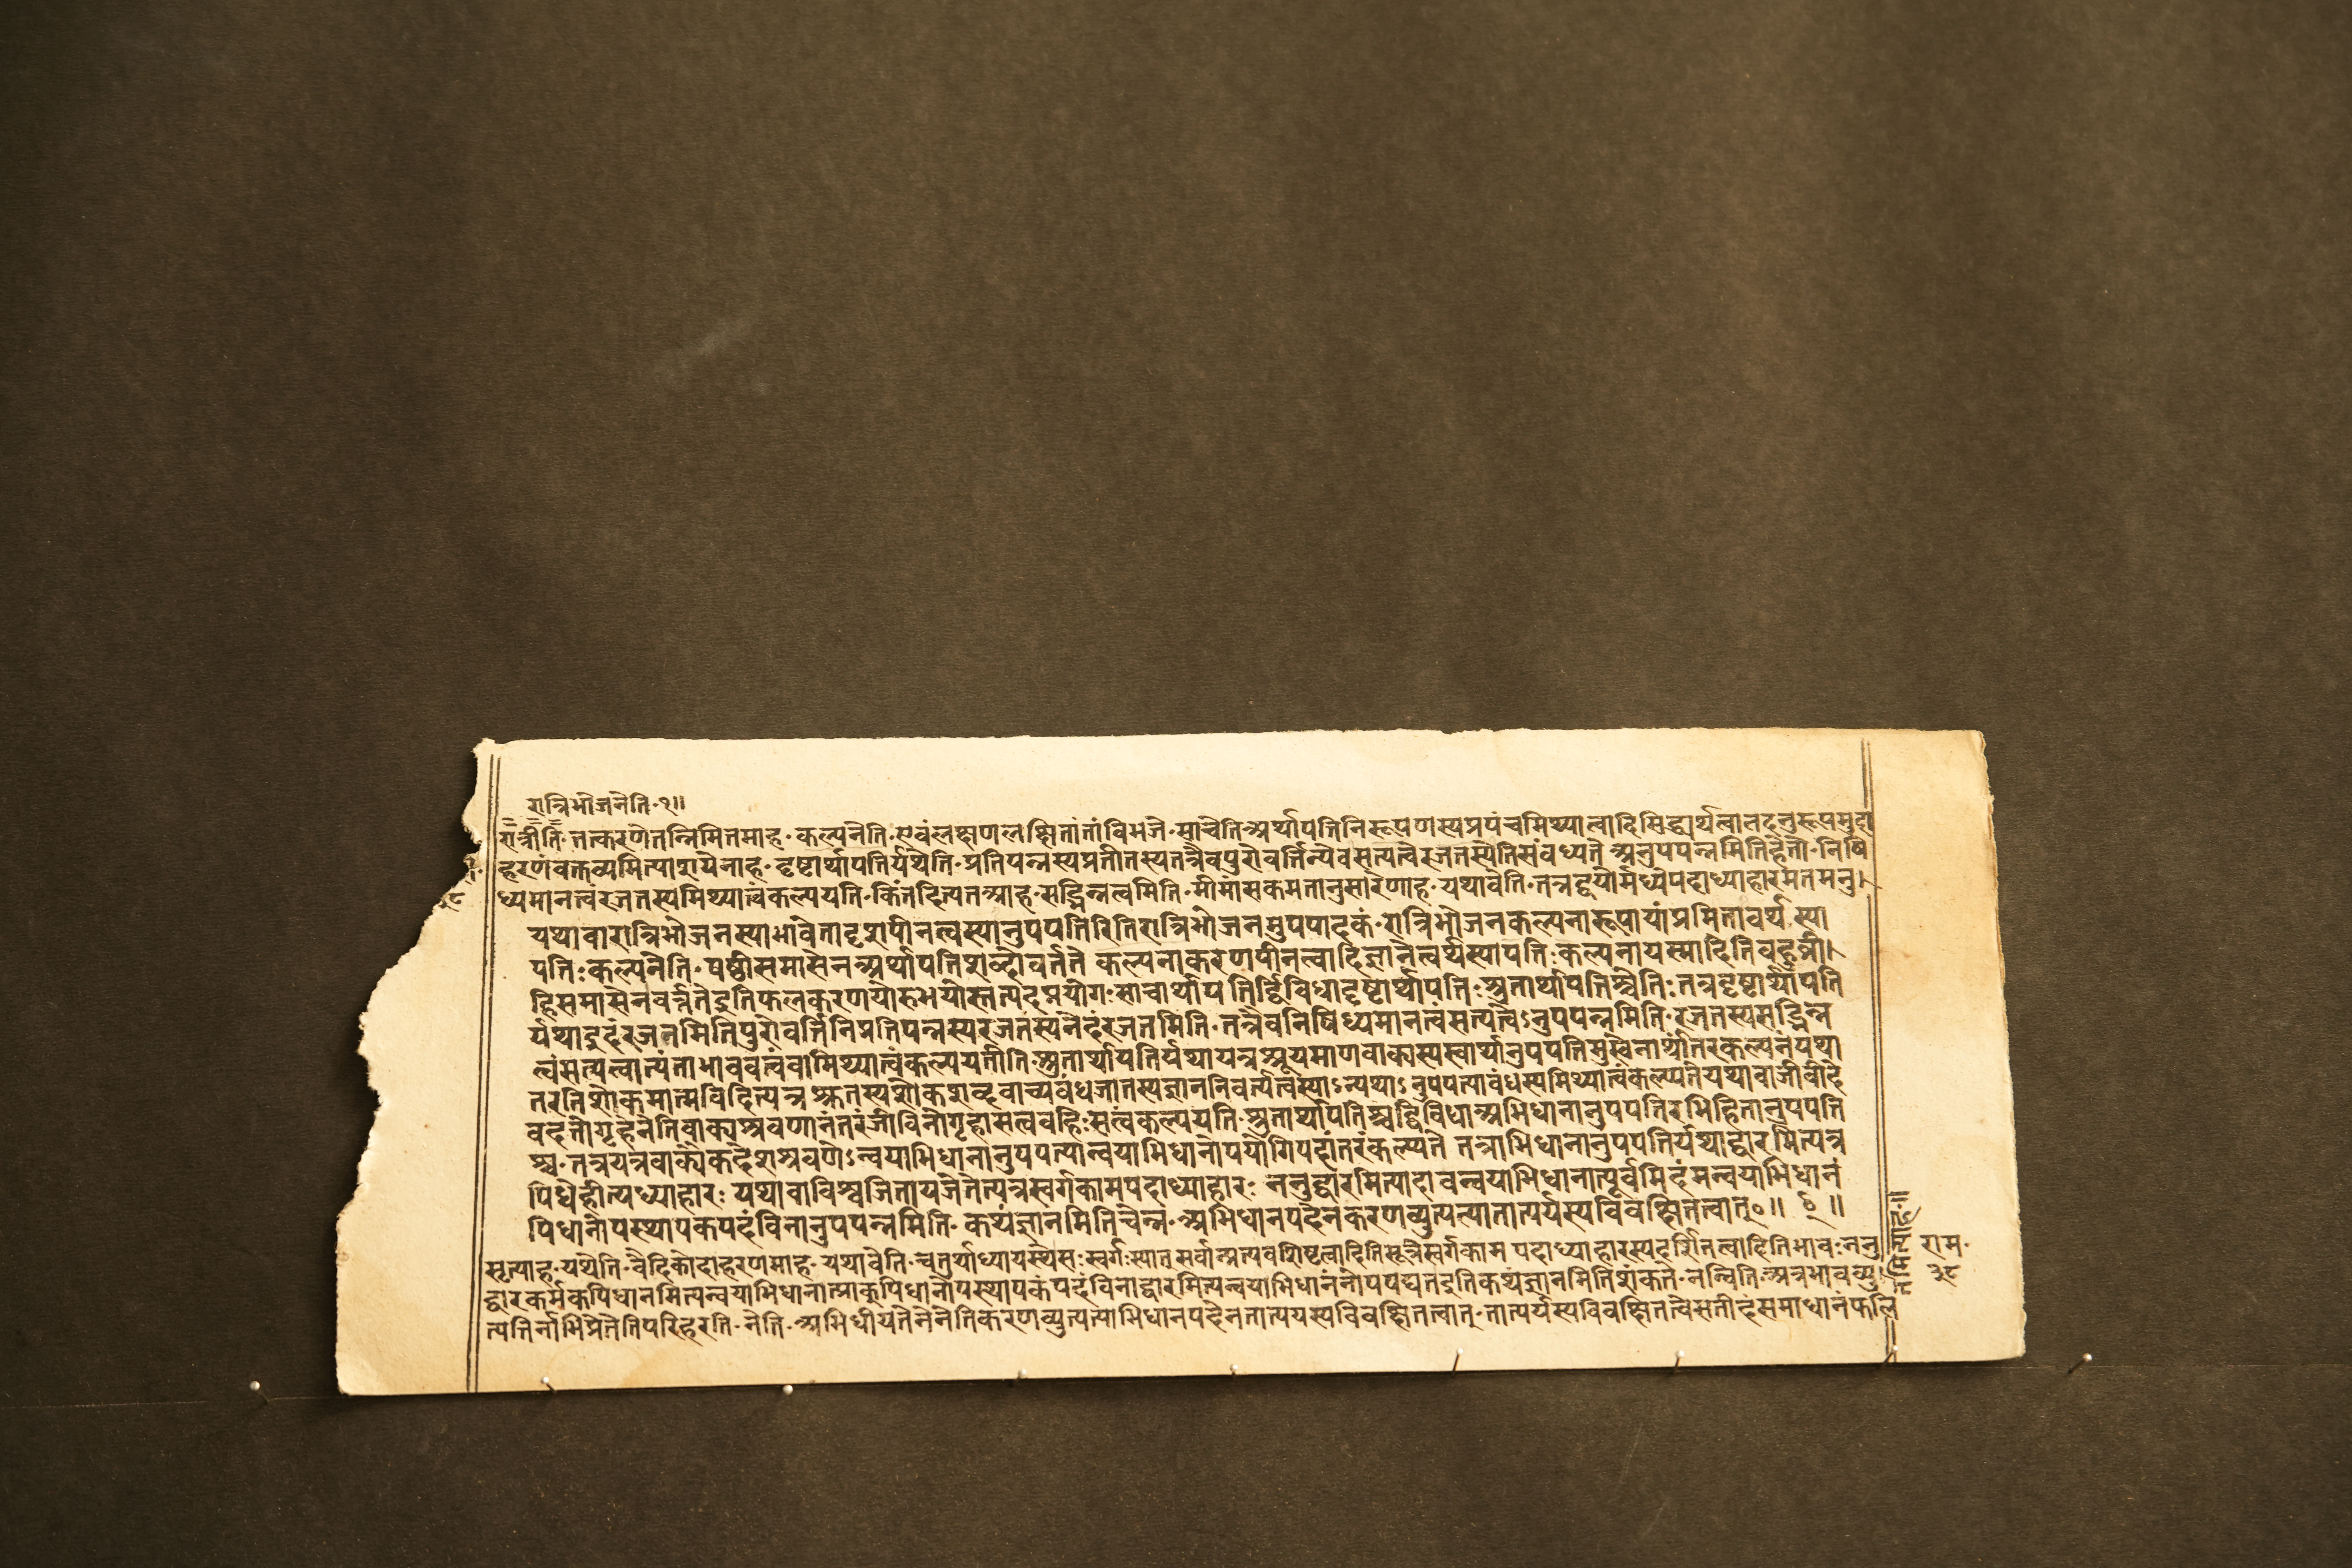 रात्रिभोजनेति॰१॥
रात्रीति॰तत्करणेतन्निमितमाह॰कल्पनेति॰एवंलक्षणलक्षितांतांविभजे॰साचेतिअर्थापत्तिनिरूपणस्यप्रपंचमिथ्यात्वादिसिद्ध्यर्थत्वात्तदनुरूपमुदा
हरणंवक्तव्यमित्याशयेनाह॰दृष्टार्थापत्तिर्यथेति॰प्रतिपन्नस्यप्रतीतस्यतत्रैवपुरोवर्त्तिन्येवसत्यत्वेरजतस्येतिसंबध्यते अनुपपन्नमितिहेतो॰निषि
ध्यमानत्वंरजतस्यमिथ्यात्वंकल्पयति॰किंतदित्यतआह॰सद्भिन्नत्वमिति॰मीमांसकमतानुसारेणाह॰यथावेति॰तत्रद्वयोर्मध्येपदाध्याहारमतमनु।
यथावारात्रिभोजनस्याभावेतादृशपीनत्वस्यानुपपत्तिरितिरात्रिभोजनमुपपादकं॰रात्रिभोजनकल्पनारूपायांप्रमितावर्थस्या
पत्तिःकल्पनेति॰षष्ठीसमासेनअर्थापत्तिशब्दोवर्तते कल्पनाकरणपीनत्वादिज्ञानेत्वर्थस्यापत्तिःकल्पनायस्मादितिबहुव्री।
हिसमासेनवर्त्ततेइतिफलकरणयोरुभयोस्तत्पदप्रयोगःसाचार्थापत्तिर्द्विविधादृष्टार्थापत्तिःश्रुतार्थापत्तिश्चेतिःतत्रदृष्टार्थापत्ति
र्यथाइदंरजतमितिपुरोवर्त्तिनिप्रतिपन्नस्यरजतस्यनेदंरजतमिति॰तत्रैवनिषिध्यमानत्वंसत्यत्वेऽनुपपन्नमिति॰रजतस्यसद्भिन्न
त्वंसत्यत्वात्यंताभाववत्वंवामिथ्यात्वंकल्पयतीति॰श्रुतार्थापत्तिर्यथायत्रश्रूयमाणवाक्यस्यस्वार्थानुपपत्तिमुखेनार्थांतरकल्पनंयथा
तरतिशोकमात्मविदित्यत्रश्रुतस्यशोकशब्दवाच्यबंधजातस्यज्ञाननिवर्त्यत्वस्याऽन्यथाऽनुपपत्याबंधस्यमिथ्यात्वंकल्प्यतेयथावाजीवीदे
वदत्तोगृहेनेतिवाक्यश्रवणानंतरंजीविनोगृहासत्वंबहिःसत्वंकल्पयति॰श्रुतार्थापत्तिश्चद्विविधाअभिधानानुपपत्तिरभिहितानुपपत्ति
श्च॰तत्रयत्रवाक्यैकदेशश्रवणेऽन्वयाभिधानानुपपत्यान्वयाभिधानोपयोगिपदांतरंकल्प्यते तत्राभिधानानुपपत्तिर्यथाद्वारमित्यत्र
पिधेहीत्यध्याहारः यथावाविश्वजितायजेतेत्यत्रस्वर्गकामपदाध्याहारः ननुद्वारमित्यादावन्वयाभिधानात्पूर्वमिदमन्वयाभिधानं
पिधानोपस्थापकपदंविनानुपपन्नमिति॰कथंज्ञानमितिचेन्न॰अभिधानपदेनकरणव्युत्पत्यातात्पर्यस्यविवक्षितत्वात्॰॥
सृत्याह॰यथेति॰वैदिकोदाहरणमाह॰यथावेति॰चतुर्थाध्यायस्थेसःस्वर्गःस्यात्सर्वान्प्रत्यविशिष्टत्वादितिसूत्रेस्वर्गकाम पदाध्याहारस्यदर्शितत्वादितिभावःननु
द्वारकर्मकपिधानमित्यन्वयाभिधानात्प्राक्पिधानोपस्थापकंपदंविनाद्वारमित्यन्वयाभिधानंनोपपद्यतेइतिकथंज्ञानमितिशंकते॰नन्विति॰अत्रभावव्यु
त्पत्तिर्नाभिप्रेतेतिपरिहरति॰नेति॰अभिधीयतेनेनेतिकरणव्युत्पत्याभिधानपदेनतात्पर्यस्यविवक्षितत्वात्॰तात्पर्यस्यविवक्षितत्वेसतीदंसमाधानंफलि
राम॰
३८